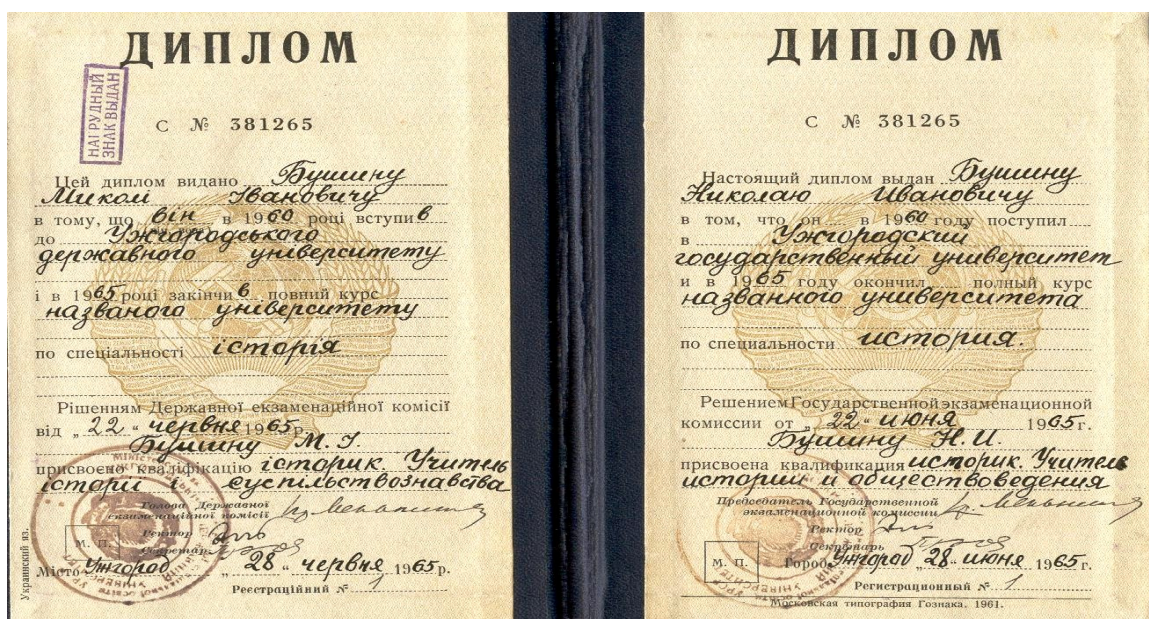 ДИПЛОМ
НАГРУДНЫЙ
ЗНАК ВЫДАН
С № 381265
Цей диплом видано Бушину
Миколі Івановичу
в тому, що він в 1960 році вступив
до Ужгородського
державного університету
і в 1965 році закінчив повний курс
названого університету
по спеціальності історія
Рішенням Державної екзаменаційної комісії
від „22“ червня 1965 р.
Бушину М. І.
присвоєно кваліфікацію історик. Учитель
історії і суспільствознавства
Голова Державної
екзаменаційної комісії
Ректор
Секретар
М. П.
Місто Ужгород „28“ червня 1965 р.
Реєстраційний № 1
Украинский яз.
ДИПЛОМ
С № 381265
Настоящий диплом выдан Бушину
Николаю Ивановичу
в том, что он в 1960 году поступил
в Ужгородский
государственный университет
и в 1965 году окончил полный курс
названного университета
по специальности история.
Решением Государственной экзаменационной
комиссии от „22“ июня 1965 г.
Бушину Н. И.
присвоена квалификация историк. Учитель
истории и обществоведения
Председатель Государственной
экзаменационной комиссии
Ректор
Секретарь
М. П.
Город Ужгород „28“ июня 1965 г.
Регистрационный № 1
Московская типография Гознака. 1961.